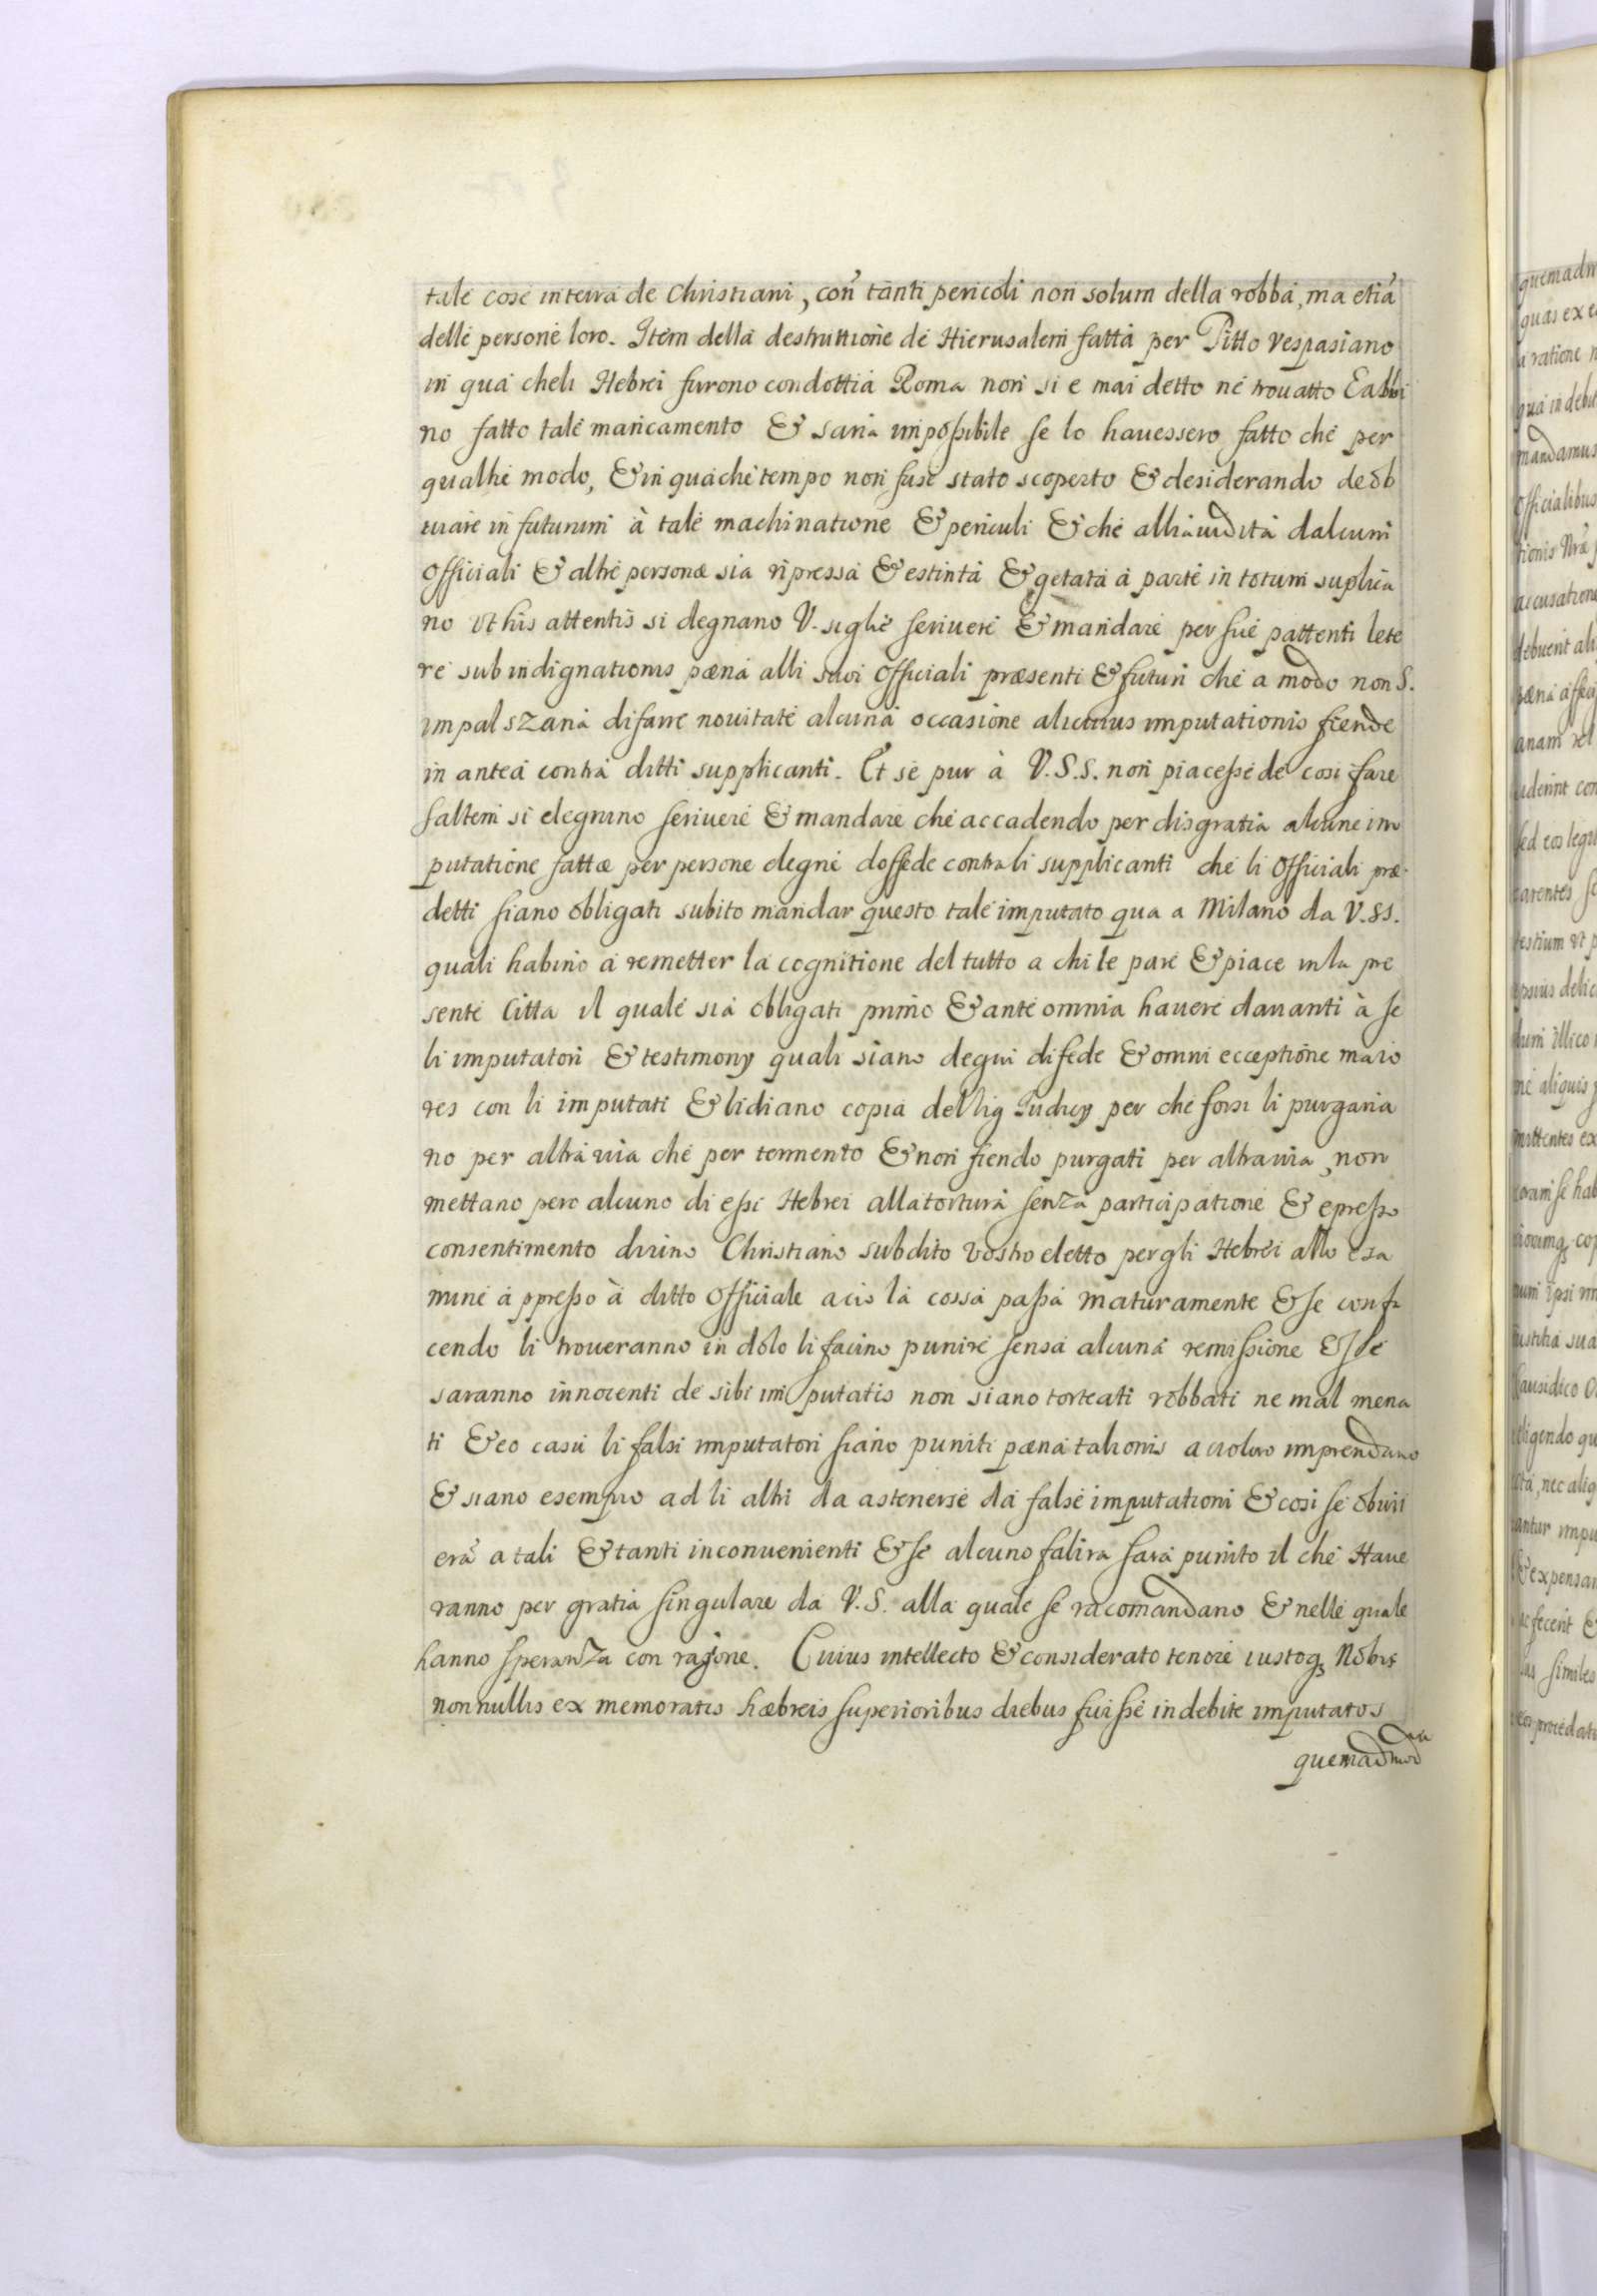 tale cose in terra de Christiani, con tanti pericoli non solum della robba, ma etiã
delle persone loro. Item della destruttione de Hierusalem fatta per Titto Vespasiano
in qua cheli Hebrei furono condotti à Roma non si e mai detto ne trouatto Eabbi
no fatto tale mancamento & saria impossibile se lo hauessero fatto che per
qualhe modo, & in quache tempo non fuse stato scoperto & desiderando de ob
uiare in futurum à tale machinatione & periculi & che allhauidità dalcuni
Officiali & altre personæ sia ripressa & estinta & getata à parte in totum suplica
no Vt his attentis si degnano V. siglie scriuere & mandare per sue pattenti lete
re sub indignationis pæna alli suoi Officiali præsenti & futuri che a modo non S.
impalszana di farre nouitate alcuna occasione alicuius imputationis fiende
in antea contra ditti supplicanti. Et se pur à V.S.S. non piacesse de cosi fare
saltem si degnino scriuere & mandare che accadendo per disgratia alcune im
putatione fattæ per persone degne dosfede contra li supplicanti che li Officiali præ
detti siano obligati subito mandar questo tale imputato qua a Milano da V.SS.
quali habino à remetter la cognitione del tutto a chi le pare & piace in la pre
sente Citta il quale sia obligati primo & ante omnia hauere dauanti à se
li imputatori & testimony quali siano degni di fede & omni ecceptione maio
res con li imputati & li diano copia delli Judicy per che forsi li purgaria
no per altra uia che per tormento & non siendo purgati per altra uia, non
mettano pero alcuno di essi Hebrei alla tortura senza participatione & epresso
consentimento diuino Christiano subdito Vostro eletto per gli Hebrei allo esa
mine appresso à ditto Officiale acio la cossa passa maturamente & se confa
cendo li troueranno in dolo li facino punire sensa alcuna remissione & se
saranno innocenti de sibi imputatis non siano torteati robbati ne mal mena
ti & eo casu li falsi imputatori siano puniti pæna talionis acioloro imprendano
& siano esempio ad li altri da astenerse da false imputationi & cosi se obuii
erà a tali & tanti inconuenienti & se alcuno falira sara punito il che Haue
ranno per gratia singulare da V.S. alla quale se racomandano & nelle quale
hanno speranza con ragione. Cuius intellecto & considerato tenore iustoq₃ Nobis
nonnullis ex memoratis hæbreis superioribus diebus fuisse indebite imputatos
quemadmodũ